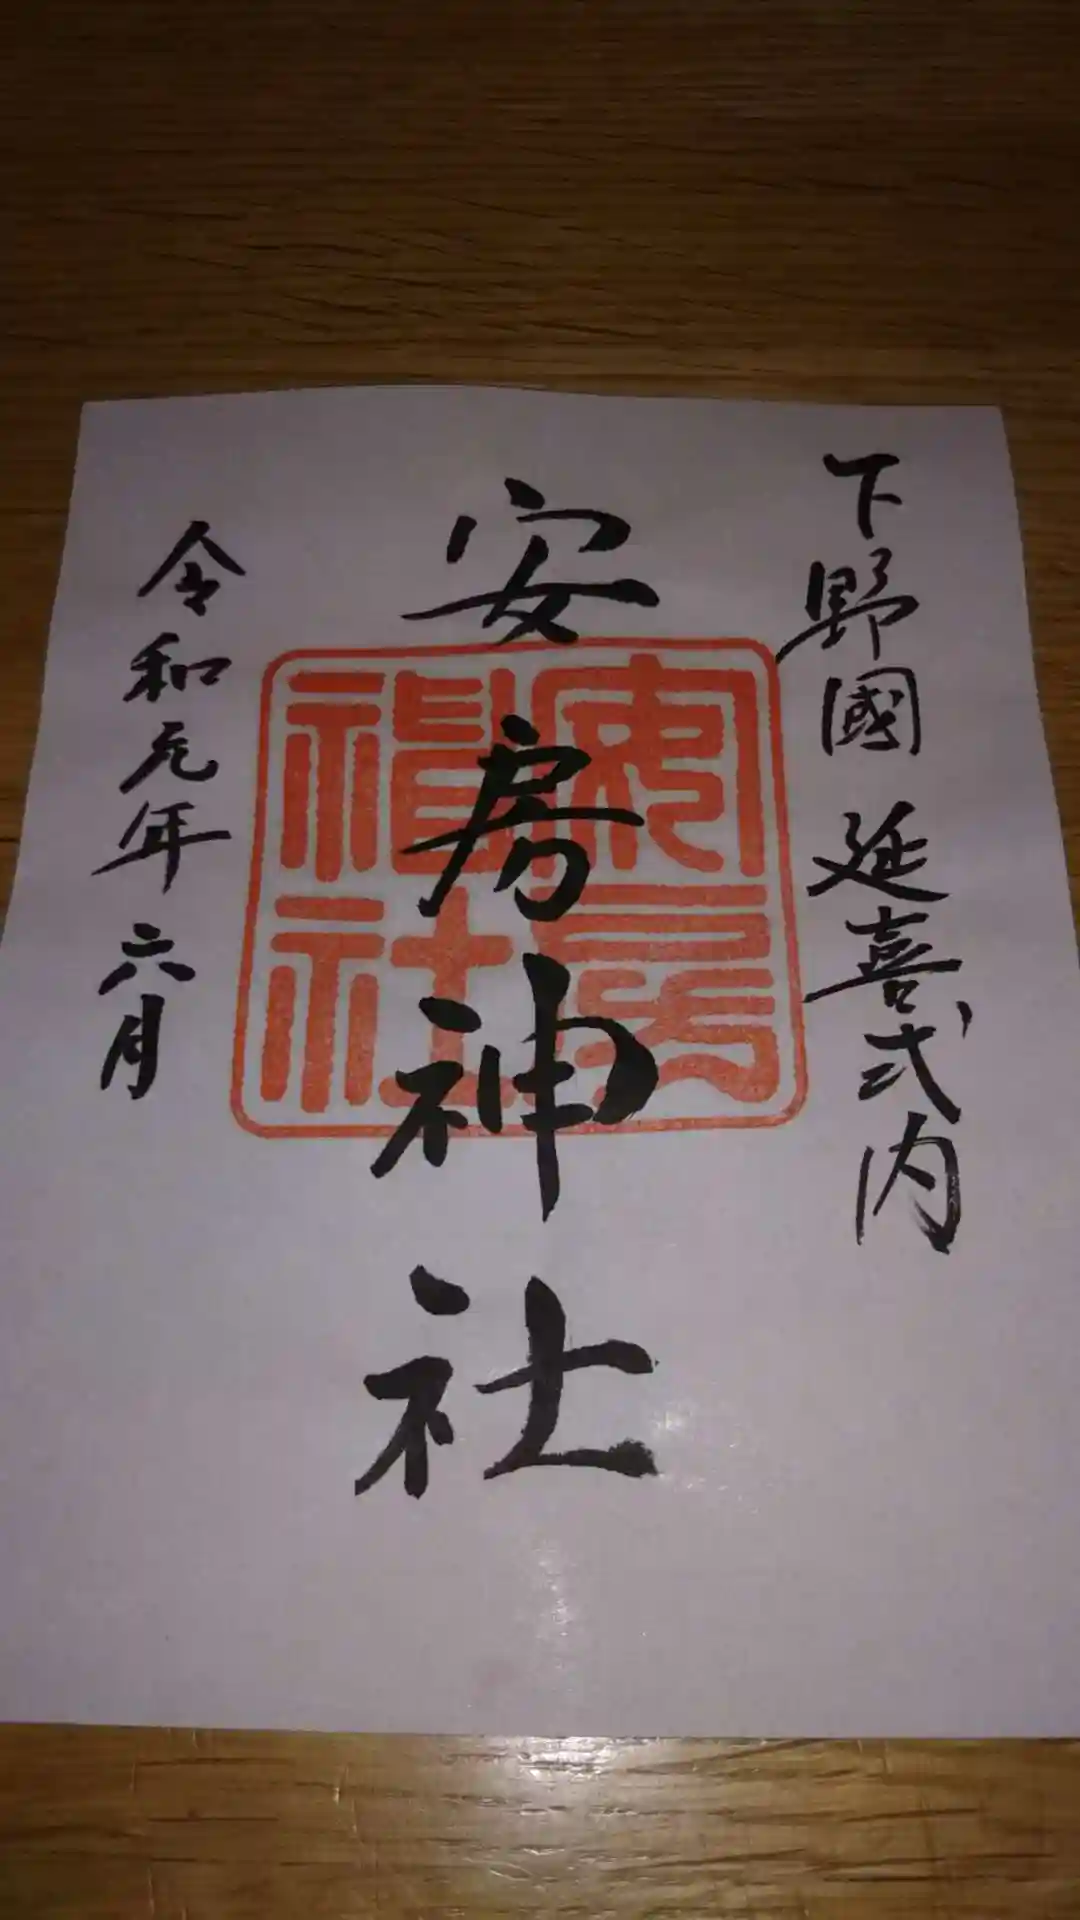 下野國 延喜式内
安房神社
令和元年六月
安房神社